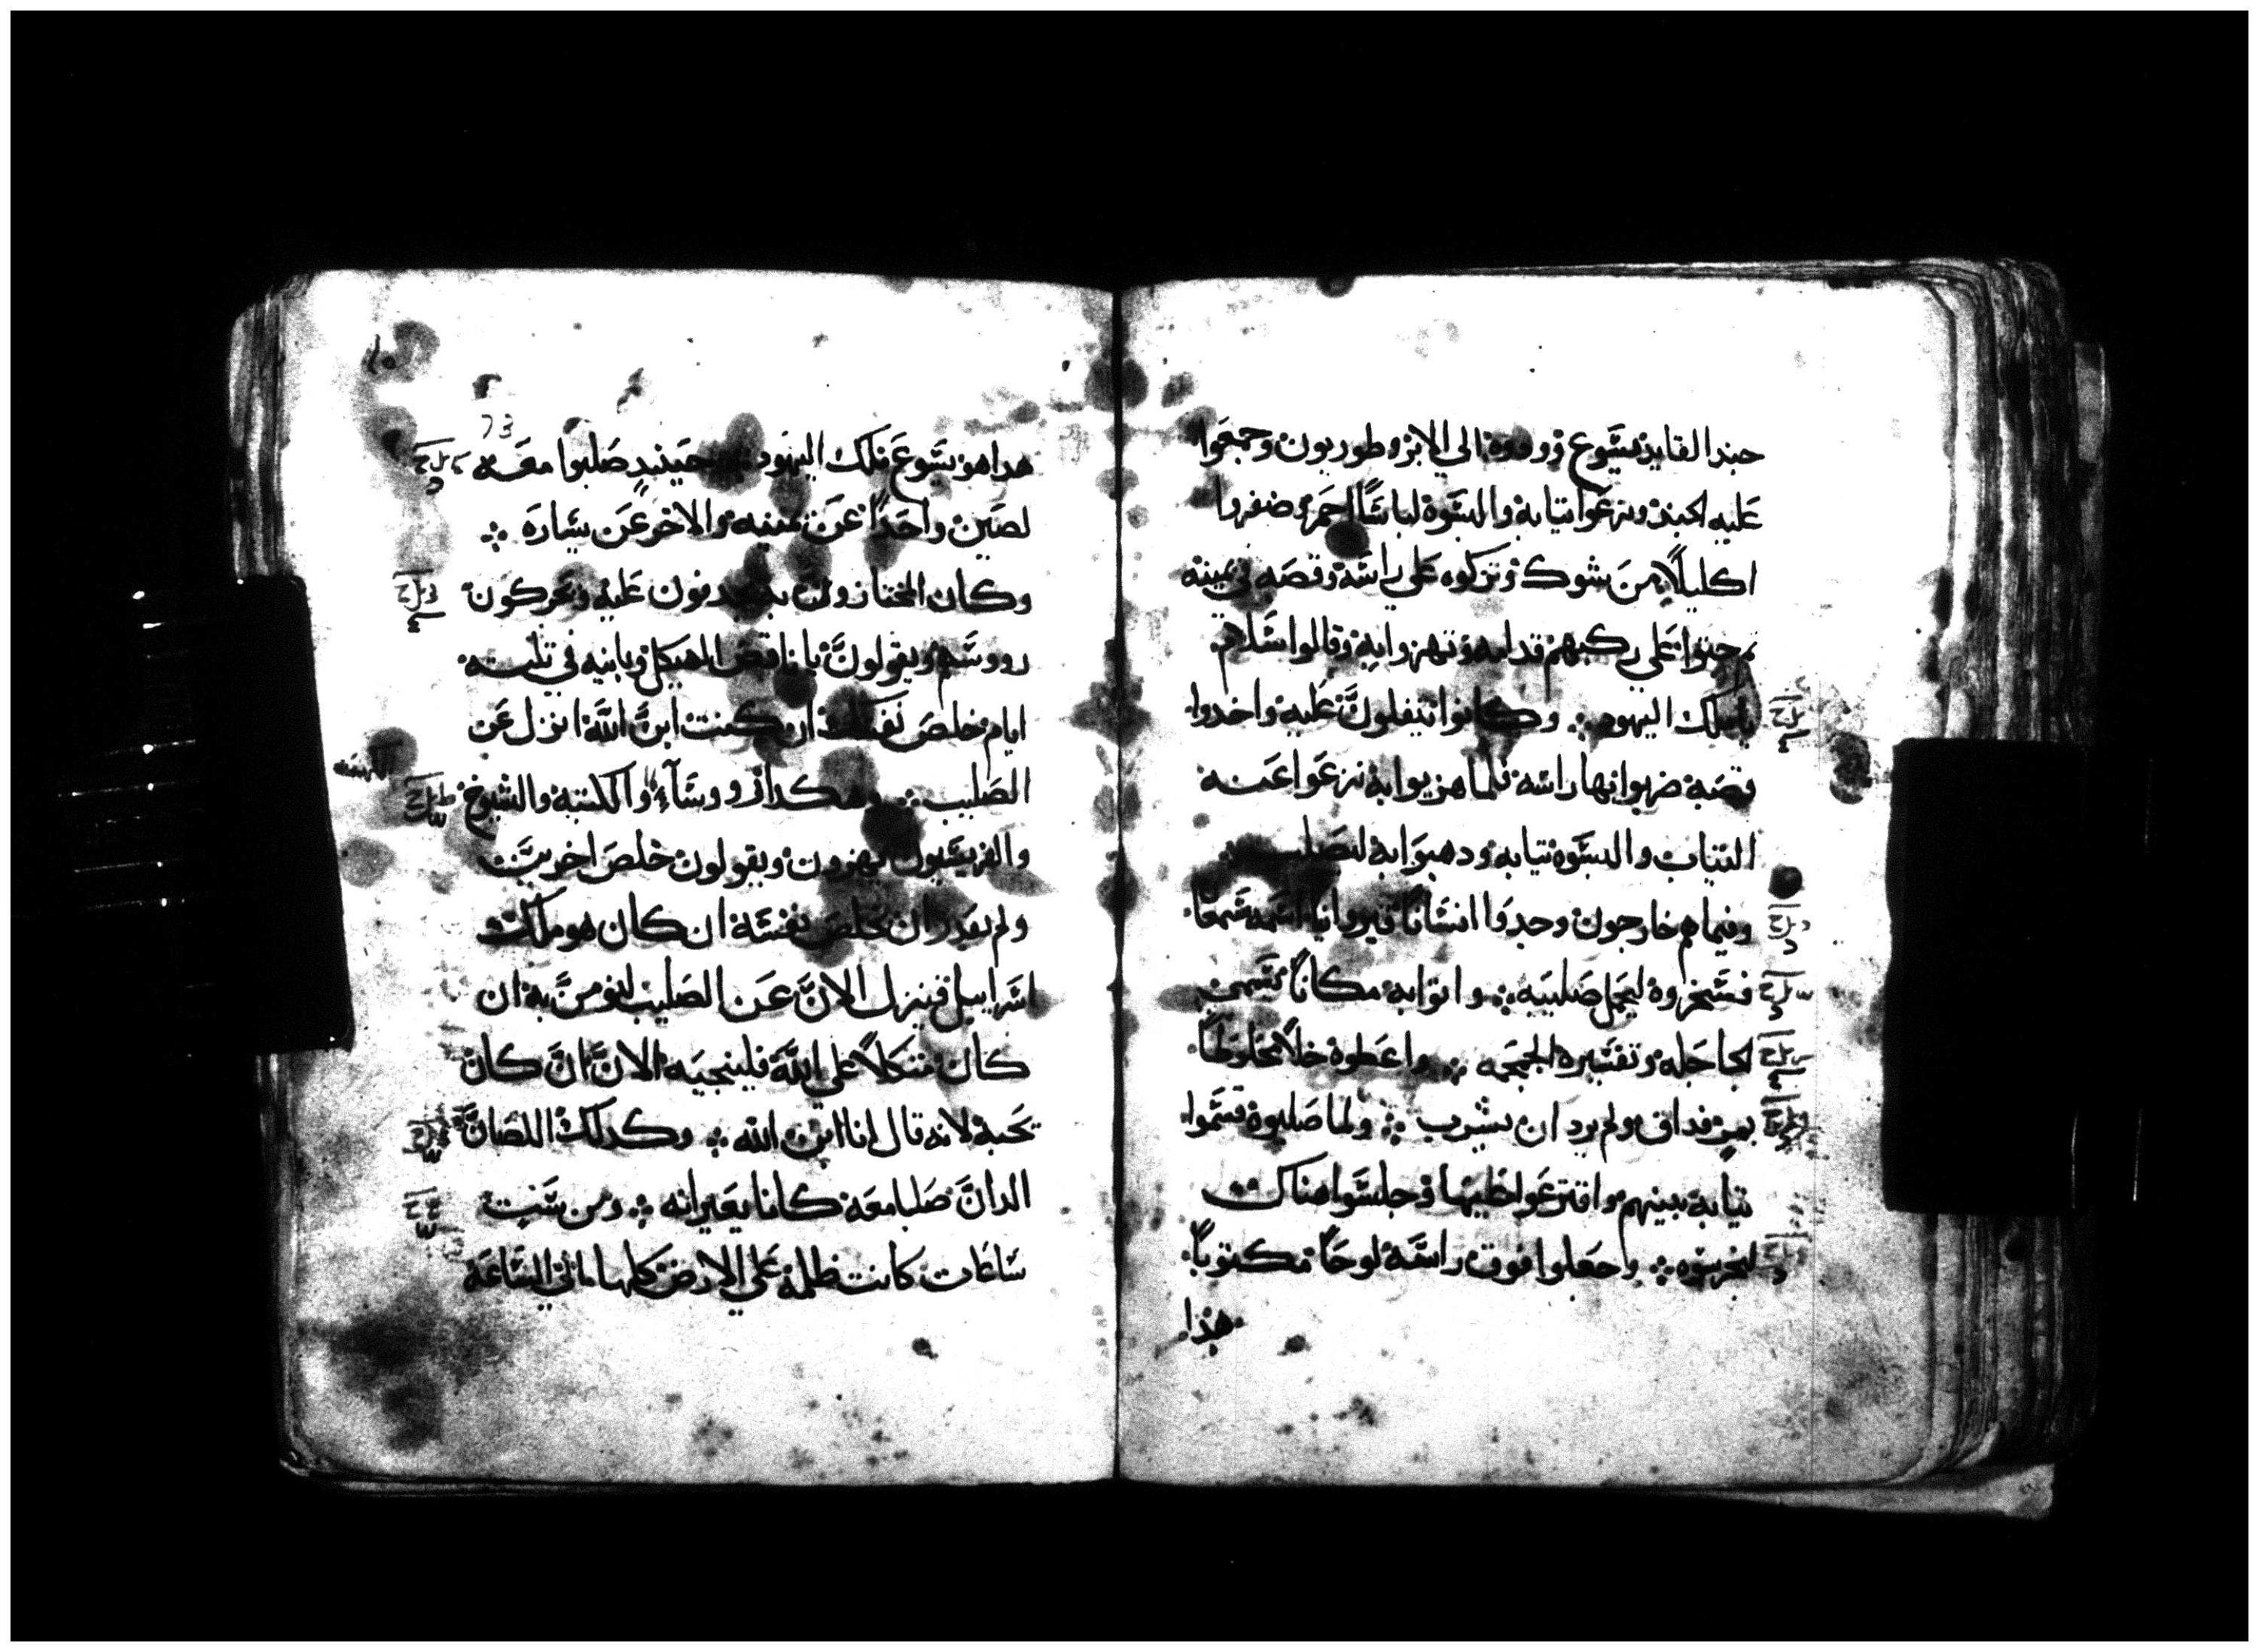 جندا لقايد يسوع ودوه الي الابروطوريون وجمعوا
عليه الجند ونزعوا تيابه والبسوه لباسًا احمر وضفروا
اكليلًا من شوك وتركوه علي راسه وقصبه في يمينه
وجتوا علي ركبهم قدامه وتهزوا به وقالوا سلام
ياملك اليهود ⁘ وكانوا يتفلون عليه واخدوا
قصبة ضربوا بها راسه فلما هزيوا به نزعوا عنه
التياب والبسوه تيابه ودهبوا به ليصلب
وفيما هم خارجون وجدوا انسانًا قيروانيًا اسمه سمعان
فسخروه ليحمل صليبه ⁘ واتوا به مكانًا يسمي
الجاجله وتفسيره الجمجمه ⁘ واعطوه خلًا مخلوطًا
بمر فداق ولم يرد ان يشرب ⁘ ولما صلبوه قسموا
تيابه بينهم واقترعوا عليها وجلسوا هناك
ليحرسوه ⁘ واجعلوا فوق راسه لوحًا مكتوبًا
هذا
73
هدا هو يسوع ملك اليهود ⁘ حينيدٍ صلبوا معه
لصين واحدًا عن يمينه والاخر عن يساره ⁘
وكان المجتازون يجدفون عليه ويحركون
رووسهم ويقولون ياناقض الهيكل وبانيه في تلته
ايام خلص نفسك ان كنت ابن الله انزل عن
الصليب ⁘ وهكدا رووساء والكتبة والشيوخ
الكهنه
والفريسيون يهزون ويقولون خلص اخرين
ولم يقدر ان يخلص نفسه ان كان هو ملك
اسراييل فينزل الان عن الصليب لنومن به ان
كان متكلًا علي الله فلينجيه الان ان كان
يحبه لانه قال انا ابن الله ⁘ وكدلك اللصان
الدان صلبا معه كانا يعيرانه ⁘ ومن ست
ساعات كانت ظلمة علي الارض كلها الي الساعه